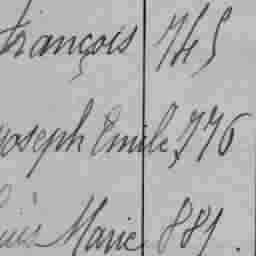 François 745
Joseph Emile 776
Marie 881.